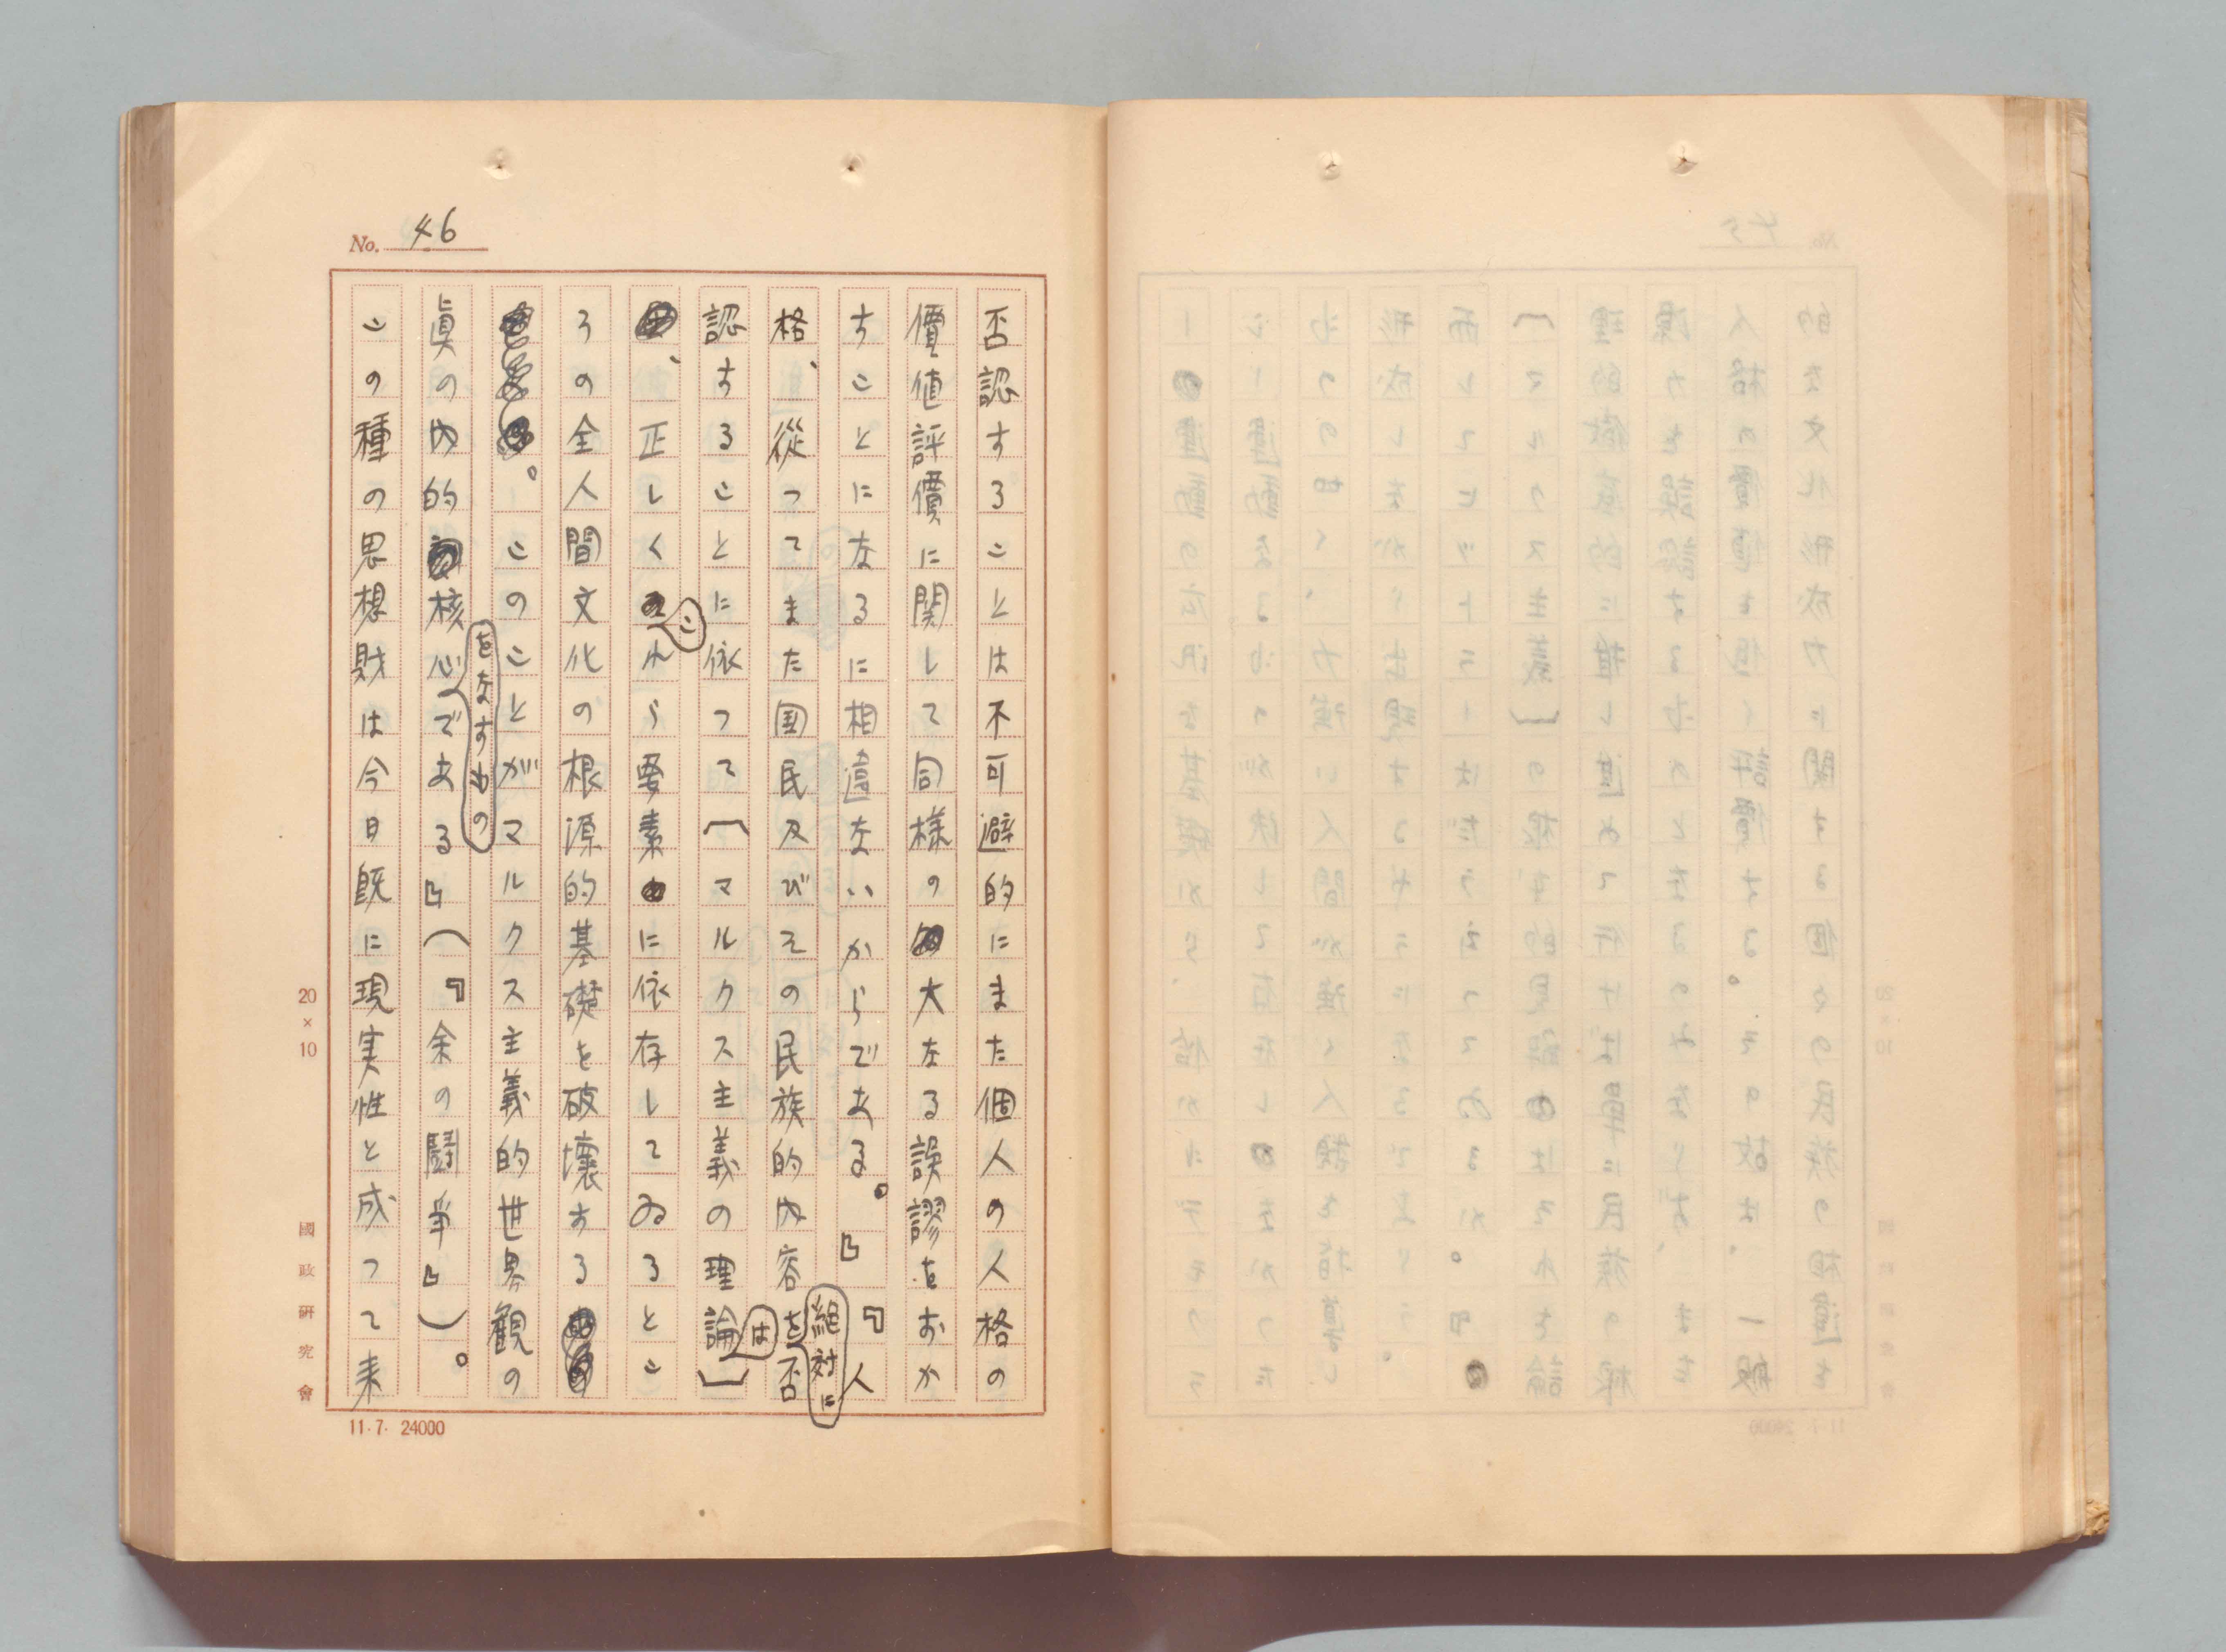 No. 46
否認することは不可避的にまた個人の人格の
價値評價に関して同様の大なる誤謬をおか
すことになるに相違ないからである。』『人
格、從つてまた国民及びその民族的内容を絶対に否
認することに依つて〔マルクス主義の理論〕は
、正しくこれら要素に依存してゐるとこ
ろの全人間文化の根源的基礎を破壊する
。このことがマルクス主義的世界観の
眞の内的核心をなすものである』(『余の闘爭』)。
この種の思想財は今日既に現実性と成つて来
20×10
國政研究會
11.7. 24000